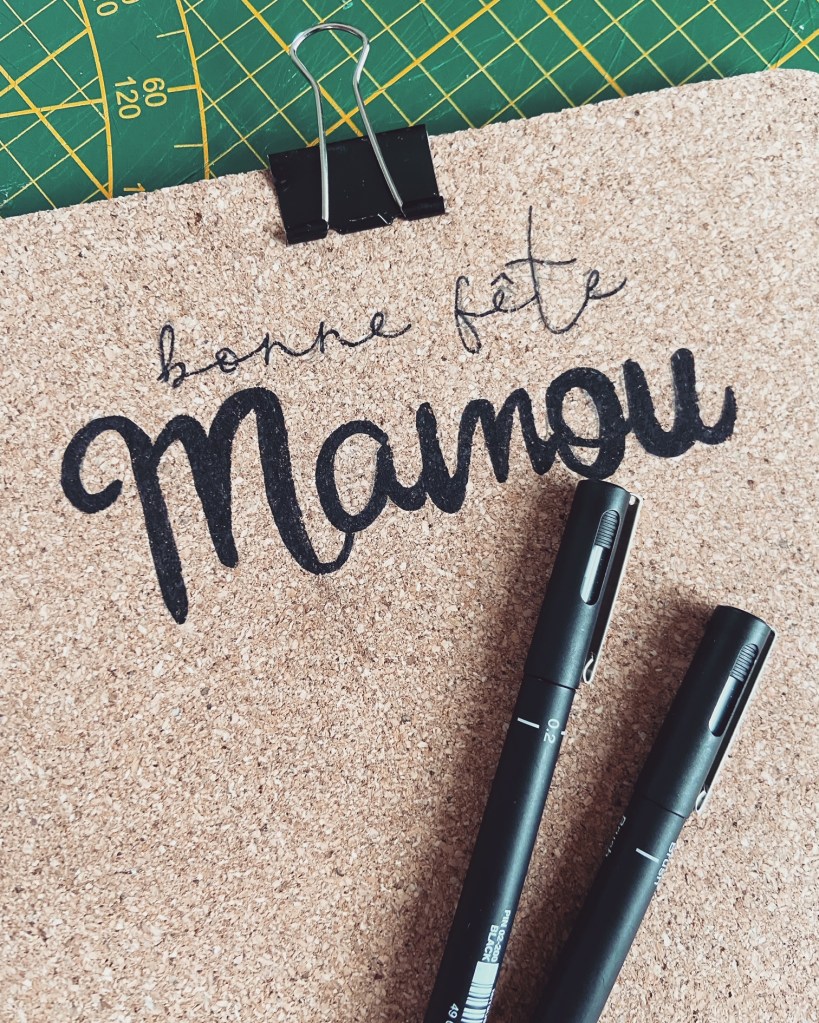 60
120
bonne fête
Mamou
0.2
Brush
PIN 02-200
BLACK
49